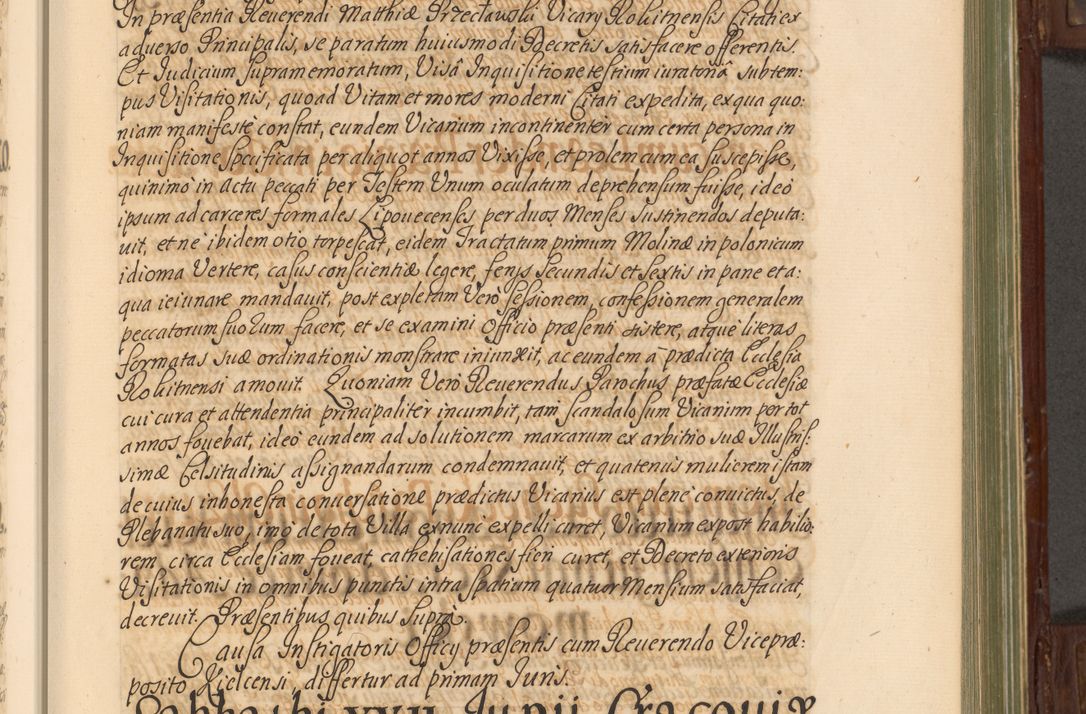 In præsentia Reuerendi Matthiæ Przecławski Vicarij Rokitnensis Citati ex
aduerso Principalis, se paratum huiusmodi Decretis satisfacere offerentis.
Et Iudicium supramemoratum, Visâ Inquisitione testium iuratorũ sub tem:
pus Visitationis, quoad Vitam et mores moderni Citati expedita, ex qua quo:
niam manifestè constat, eundem Vicarium incontinentèr cum certa persona in
Inquisitione specificata per aliquot annos Vixisse, et prolem cum ea suscepisse,
quinimò in actu peccati per Testem Vnum oculatum deprehensum fuisse, ideò
ipsum ad carceres formales Lipouecenses per duos Menses sustinendos deputa:
uit, et ne ibidem otio torpescat, eidem Tractatum primum Molinæ in polonicum
idioma Vertere, casus conscientiæ legere, ferijs secundis et sextis in pane et a:
qua ieiunare mandauit, post expletam Verò sessionem, confessionem generalem
peccatorum suorum facere, et se examini Officio præsenti sistere, atque literas
formatas suæ ordinationis monstrare iniunxit, ac eundem à prædicta Ecclesia
Rokitnensi amouit. Quoniam Verò Reuerendus Parochus præfatæ Ecclesiæ
cui cura et attendentia principalitèr incumbit, tam scandalosum Vicarium per tot
annos fouebat, ideò eundem ad solutionem marcarum ex arbitrio suæ Illustris:
simæ Celsitudinis assignandarum condemnauit, et quatenus mulierem istam
de cuius inhonesta conuersatione prædictus Vicarius est plenè conuictus, de
Plebanatu suo, imò de tota Villa exnunc expelli curet, Vicarium expost habilio:
rem, circa Ecclesiam foueat, cathehisationes fieri curet, et Decreto exterioris
Visitationis in omnibus punctis intra spatium quatuor Mensium satisfaciat,
decreuit. Præsentibus quibus suprà.
Causa Instigatoris Officij præsentis cum Reuerendo Vicepræ:
posito Kielcensi, differtur ad primam Iuris.
Sabbathi XXII Iunii Cracouiæ